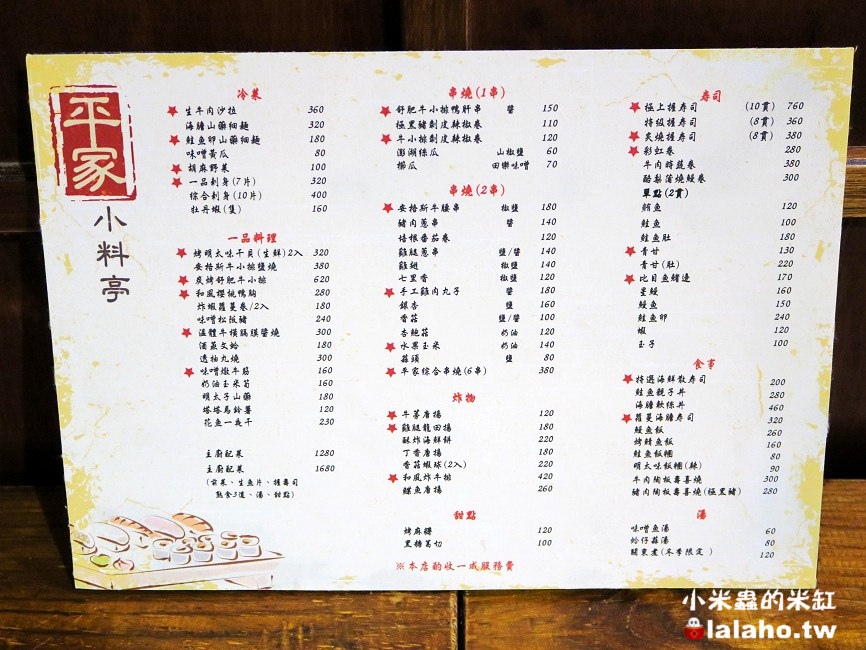 平家
小料亭
冷菜
生牛肉沙拉 360
海膽山藥細麵 320
鮭魚卵山藥細麵 180
味噌黃瓜 80
胡麻野菜 100
一品刺身(7片) 320
綜合刺身(10片) 400
牡丹蝦(隻) 160
一品料理
烤明太味干貝(生鮮)2入 320
安格斯牛小排鹽燒 380
炭烤舒肥牛小排 620
和風櫻桃鴨胸 280
炸蝦蘿蔓卷/2入 180
味噌松阪豬 240
溫體牛橫膈膜醬燒 300
酒蒸文蛤 180
透抽丸燒 300
味噌燉牛筋 160
奶油玉米筍 160
明太子山藥 180
塔塔馬鈴薯 120
花魚一夜干 230
主廚配菜 1280
主廚配菜 1680
(前菜、生魚片、握壽司
熟食3道、湯、甜點)
串燒(1串)
舒肥牛小排鴨肝串 醬 150
極黑豬剝皮辣椒卷 110
牛小排剝皮辣椒卷 120
澎湖絲瓜 山椒鹽 60
櫛瓜 田樂味噌 70
串燒(2串)
安格斯牛腰串 椒鹽 180
豬肉蔥串 醬 140
培根番茄卷 120
雞腿蔥串 鹽/醬 140
雞翅 椒鹽 140
七里香 椒鹽 120
手工雞肉丸子 醬 180
銀杏 鹽 160
香菇 鹽/醬 100
杏鮑菇 奶油 120
水果玉米 奶油 140
蒜頭 鹽 80
平家綜合串燒(6串) 380
炸物
牛蒡唐揚 120
雞腿龍田揚 180
酥炸海鮮餅 220
丁香唐揚 180
香菇蝦球(2入) 220
和風炸牛排 420
鰈魚唐揚 260
甜點
烤麻糬 120
黑糖葛切 100
※本店酌收一成服務費
寿司
極上握寿司 (10貫) 760
特級握寿司 (8貫) 360
炙燒握寿司 (8貫) 380
彩虹卷 280
牛肉時蔬卷 380
酪梨蒲燒鰻卷 300
單點(2貫)
鮪魚 120
鮭魚 100
鮭魚肚 180
青甘 130
青甘(肚) 220
比目魚鰭邊 170
星鰻 160
鰻魚 150
鮭魚卵 240
蝦 120
玉子 100
食事
特選海鮮散寿司 200
鮭魚親子丼 280
海膽軟絲丼 460
蘿蔓海膽寿司 320
鰻魚飯 260
烤鯖魚飯 160
鮭魚飯糰 80
明太味飯糰(辣) 90
牛肉陶板壽喜燒 300
豬肉陶板壽喜燒(極黑豬) 280
湯
味噌魚湯 60
蛤仔蒜湯 80
關東煮(冬季限定) 120
小米蟲的米缸
lalaho.tw